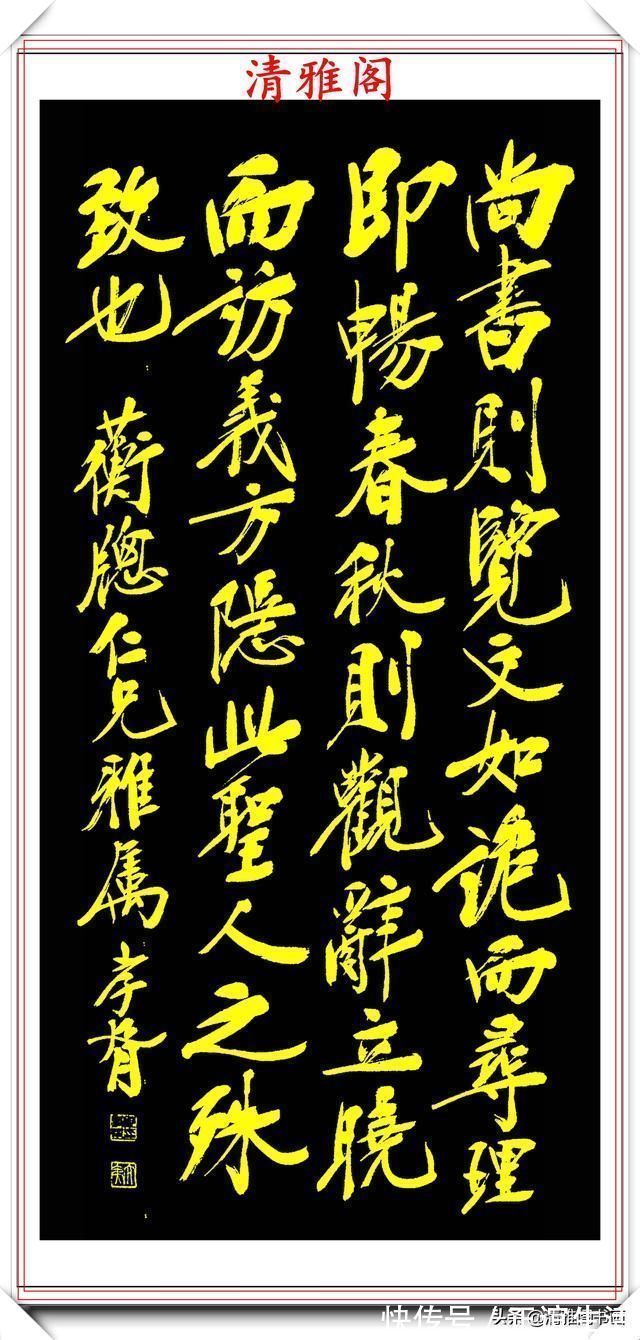 清雅阁
尚書則覽文如詭而尋理
即暢春秋則觀辭立曉
而訪義方隱此聖人之殊
致也
蘅牕仁兄雅属 孝胥
快传号
头条@清雅阁书画